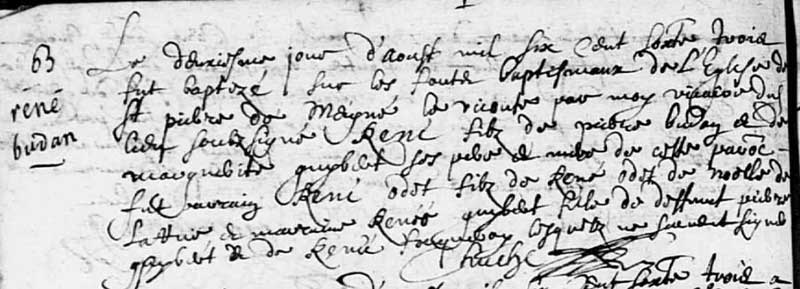 63
rené
budan
Le deuxiesme jour d'aoust mil six cent soxte trois
fut baptizé sur les fonts baptismaux de l'Eglise de
St pierre de Meigné le viconte par moy vicaire dud
lieu soubzsigné René filz de pierre budan et de
marguerite guyblet ses pere et mere de cette paroc~
fut parrain René odet filz de René odet de noelle de
la et marraine Renée guyblet fille de deffunt pierre
guyblet et de Renée lesquelz ne scavent signer
cent soxte trois